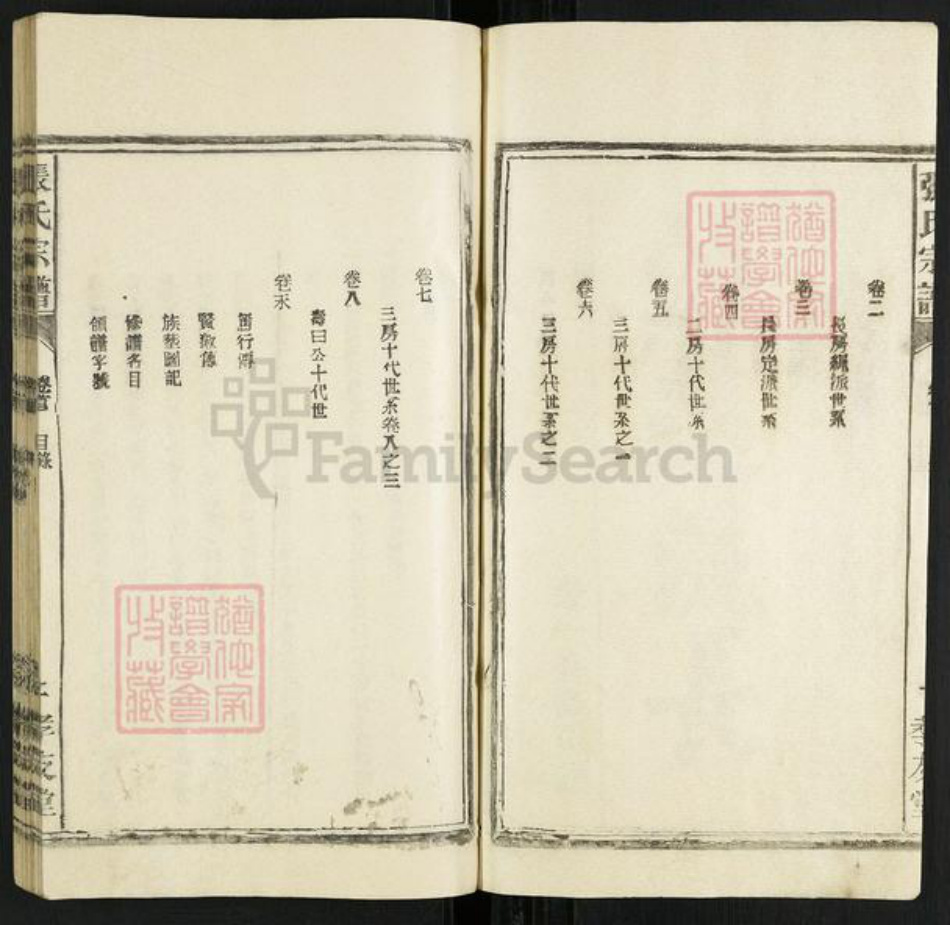 卷二
長房綱派世系
卷三
長房定派世系
卷四
二房十代世系
卷五
三房十代世系之一
卷六
三房十代世系之二
卷七
三房十代世系卷八之三
卷八
壽曰公十代世
卷末
篤行傳
賢淑傳
族塋圖記
修譜名目
領譜字號
張氏宗譜
卷首 目錄
孝友堂
猶他家譜學會收藏
FamilySearch